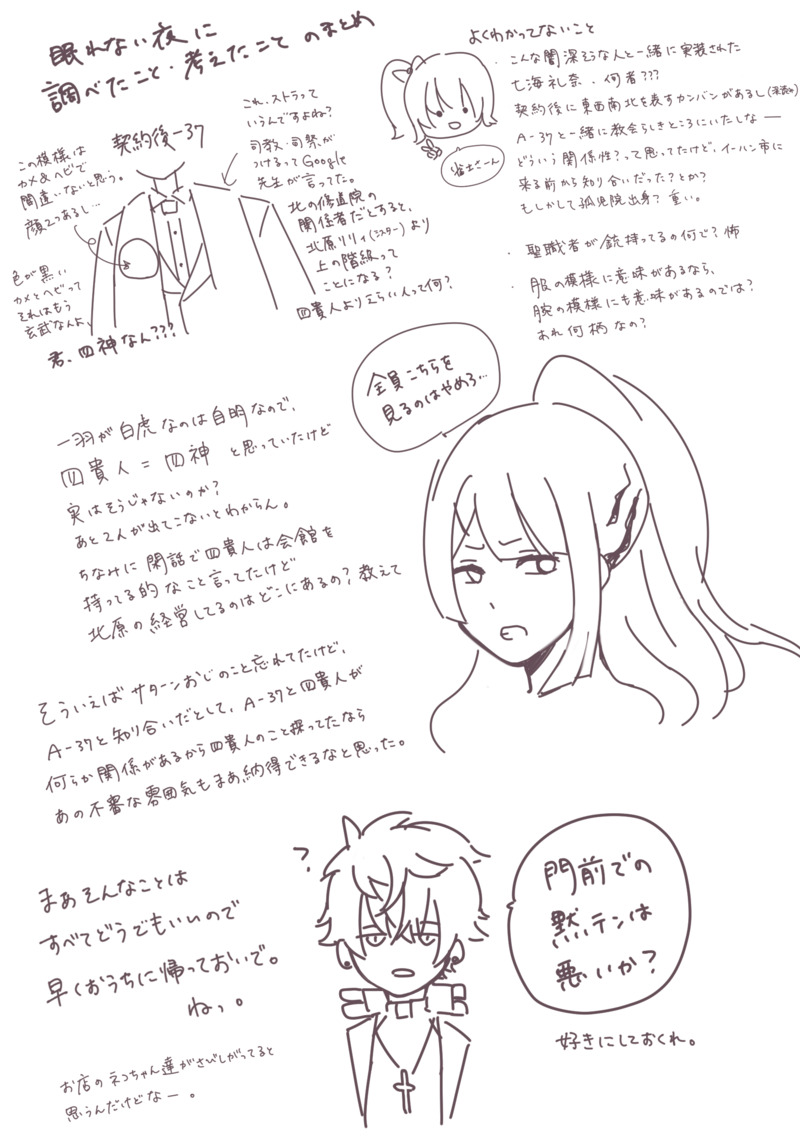 眠れない夜に
調べたこと・考えたこと のまとめ
契約後一37
この模様は
カメ&ヘビで
間違いないと思う。
顔2つあるし…
色が黒い
カメとヘビって
それはもう
玄武なんよ、
君、四神なん???
これ、ストラって
いうんですよね?
司教・司祭が
つけるってGoogle
先生が言ってた。
北の修道院の
関係者だとすると、
北原リリィ(シスター)より
上の階級って
ことになる?
四貴人よりえらい人って何?
雀士さーん
よくわかってないこと
・こんな闇深そうな人と一緒に実装された
七海礼奈、何者???
契約後に東西南北を表すカンバンがあるし
A-37と一緒に教会らしきところにいたしなー
どういう関係性?って思ってたけど、イーハン市に
来る前から知り合いだった?とか?
もしかして孤児院出身?重い。
・聖職者が銃持ってるの何で?怖
・服の模様に意味があるなら、
腕の模様にも意味があるのでは?
あれ何柄なの?
全員こちらを
見るのはやめろ…
一羽が白虎なのは自明なので、
四貴人=四神 と思っていたけど
実はそうじゃないのか?
あと2人が出てこないとわからん。
ちなみに閑話で四貴人は会館を
持ってる的なこと言ってたけど
北原の経営してるのはどこにあるの?教えて
そういえばサターンおじのこと忘れてたけど、
A-37と知り合いだとして、A-37と四貴人が
何らか関係があるから四貴人のこと探ってたなら
あの不審な雰囲気もまあ納得できるなと思った。
まあそんなことは
すべてどうでもいいので
早くおうちに帰っておいで。
ねっ。
お店のネコちゃん達がさびしがってると
思うんだけどなー。
?
門前での
黙テンは
悪いか?
好きにしておくれ。